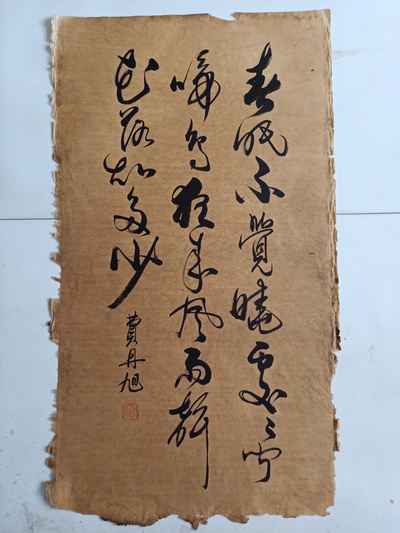 春眠不覺曉處〻聞
啼鳥夜来風雨聲
花落知多少
費丹旭